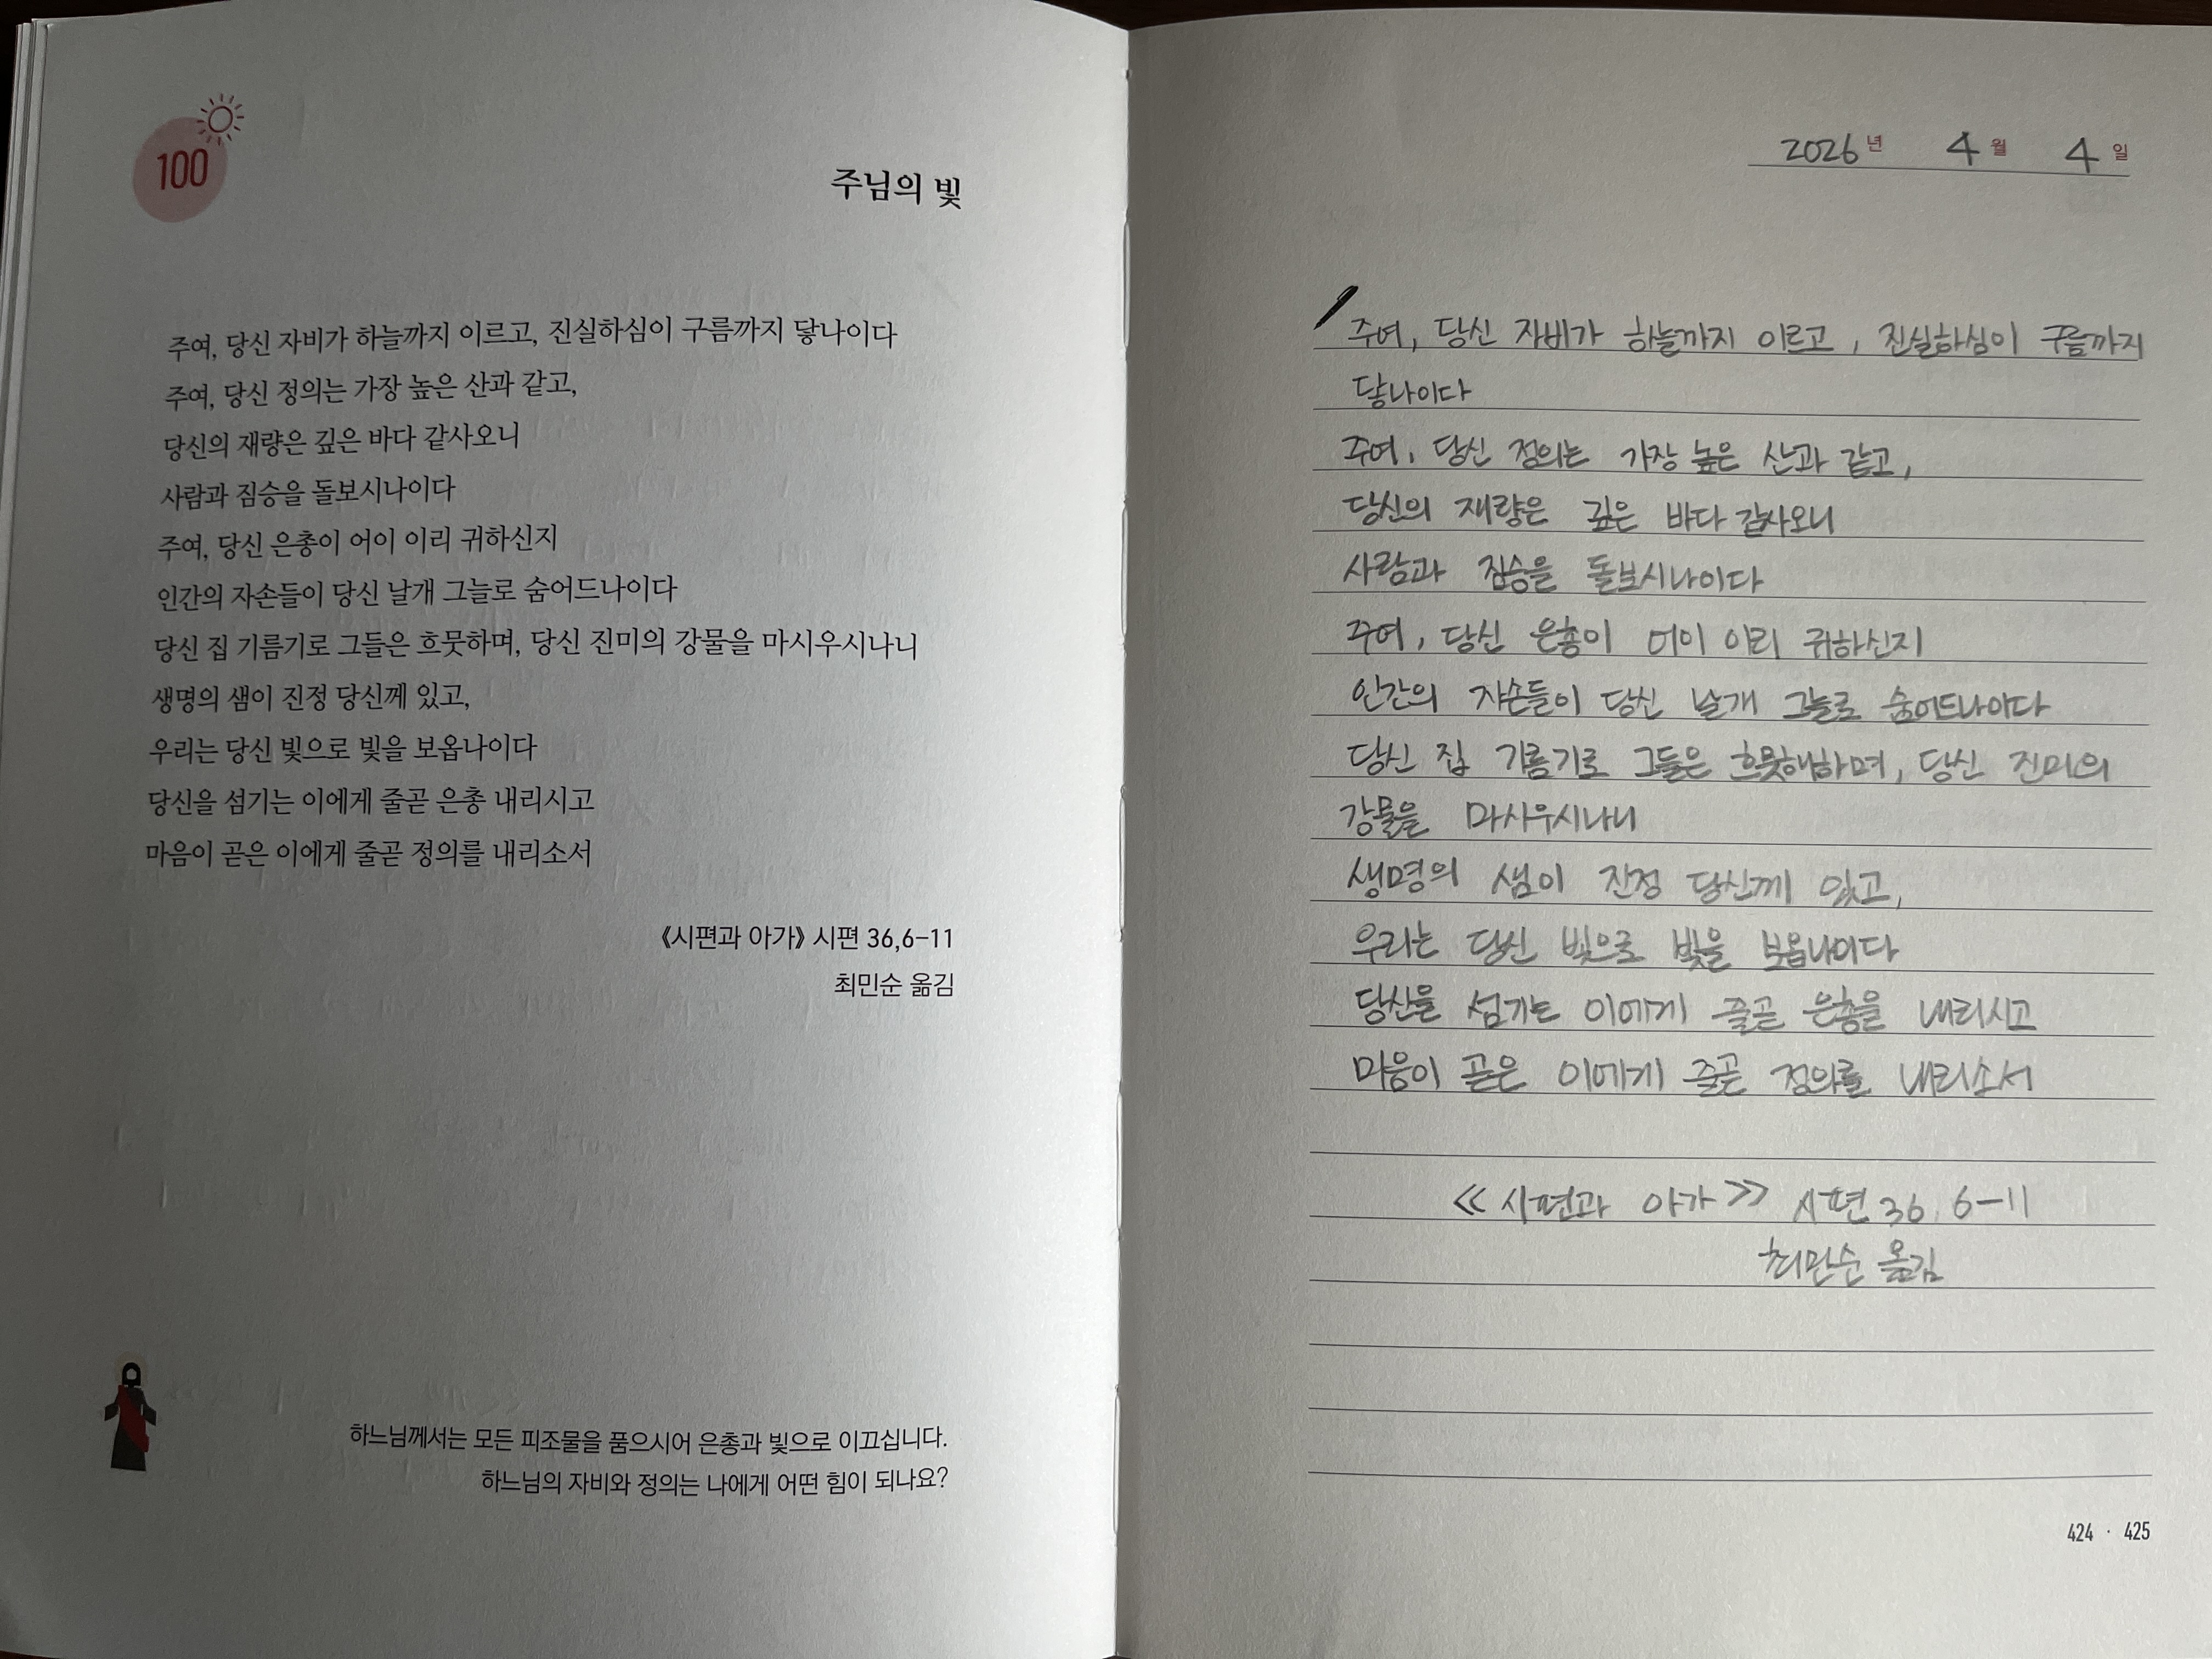 100
주님의 빛
주여, 당신 자비가 하늘까지 이르고, 진실하심이 구름까지 닿나이다
주여, 당신 정의는 가장 높은 산과 같고,
당신의 재량은 깊은 바다 같사오니
사람과 짐승을 돌보시나이다
주여, 당신 은총이 어이 이리 귀하신지
인간의 자손들이 당신 날개 그늘로 숨어드나이다
당신 집 기름기로 그들은 흐뭇하며, 당신 진미의 강물을 마시우시나니
생명의 샘이 진정 당신께 있고,
우리는 당신 빛으로 빛을 보옵나이다
당신을 섬기는 이에게 줄곧 은총 내리시고
마음이 곧은 이에게 줄곧 정의를 내리소서
《시편과 아가》 시편 36,6-11
최민순 옮김
하느님께서는 모든 피조물을 품으시어 은총과 빛으로 이끄십니다.
하느님의 자비와 정의는 나에게 어떤 힘이 되나요?
2026년 4월 4일
주여, 당신 자비가 하늘까지 이르고, 진실하심이 구름까지
닿나이다
주여, 당신 정의는 가장 높은 산과 같고,
당신의 재량은 깊은 바다 같사오니
사람과 짐승을 돌보시나이다
주여, 당신 은총이 어이 이리 귀하신지
인간의 자손들이 당신 날개 그늘로 숨어드나이다
당신 집 기름기로 그들은 흐뭇해하며, 당신 진미의
강물을 마시우시나니
생명의 샘이 진정 당신께 있고,
우리는 당신 빛으로 빛을 보옵나이다
당신을 섬기는 이에게 줄곧 은총을 내리시고
마음이 곧은 이에게 줄곧 정의를 내리소서
≪시편과 아가≫ 시편 36, 6-11
최민순 옮김
424 · 425